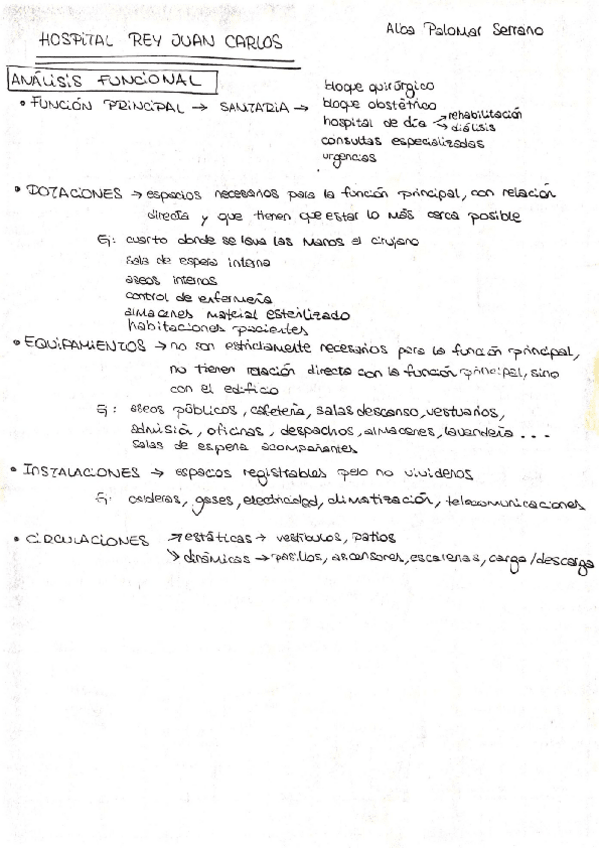 Alba Palomar Serrano
HOSPITAL REY JUAN CARLOS
ANÁLISIS FUNCIONAL
• FUNCIÓN PRINCIPAL → SANITARIA → bloque quirúrgico
bloque obstétrico
hospital de día → rehabilitación
→ diálisis
consultas especializadas
urgencias
• DOTACIONES → espacios necesarios para la función principal, con relación
directa y que tienen que estar lo más cerca posible
Ej: cuarto donde se lava las manos el cirujano
sala de espera interna
aseos internos
control de enfermería
almacenes material esterilizado
habitaciones pacientes
• EQUIPAMIENTOS → no son estrictamente necesarios para la función principal,
no tienen relación directa con la función principal, sino
con el edificio
Ej: aseos públicos, cafetería, salas descanso, vestuarios,
admisión, oficinas, despachos, almacenes, lavandería ...
salas de espera acompañantes
• INSTALACIONES → espacios registrables pero no vivideros
Ej: calderas, gases, electricidad, climatización, telecomunicaciones
• CIRCULACIONES → estáticas → vestíbulos, patios
→ dinámicas → pasillos, ascensores, escaleras, carga/descarga